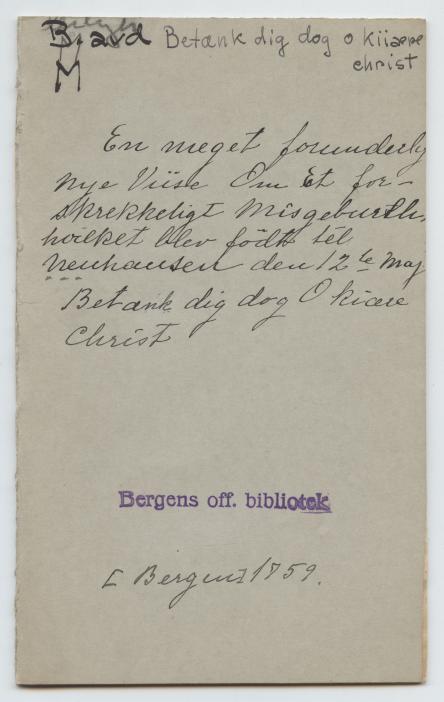 B. avd Betænk dig dog o kiiære
M christ
En meget forunderlig
nye Viise Om Et for-
skrekkeligt Misgeburth,
hvilket blev födt til
Neuhausen den 12te Maj
Betænk dig dog O kiære
Christ
Bergens off. bibliotek
[Bergen] 1759.